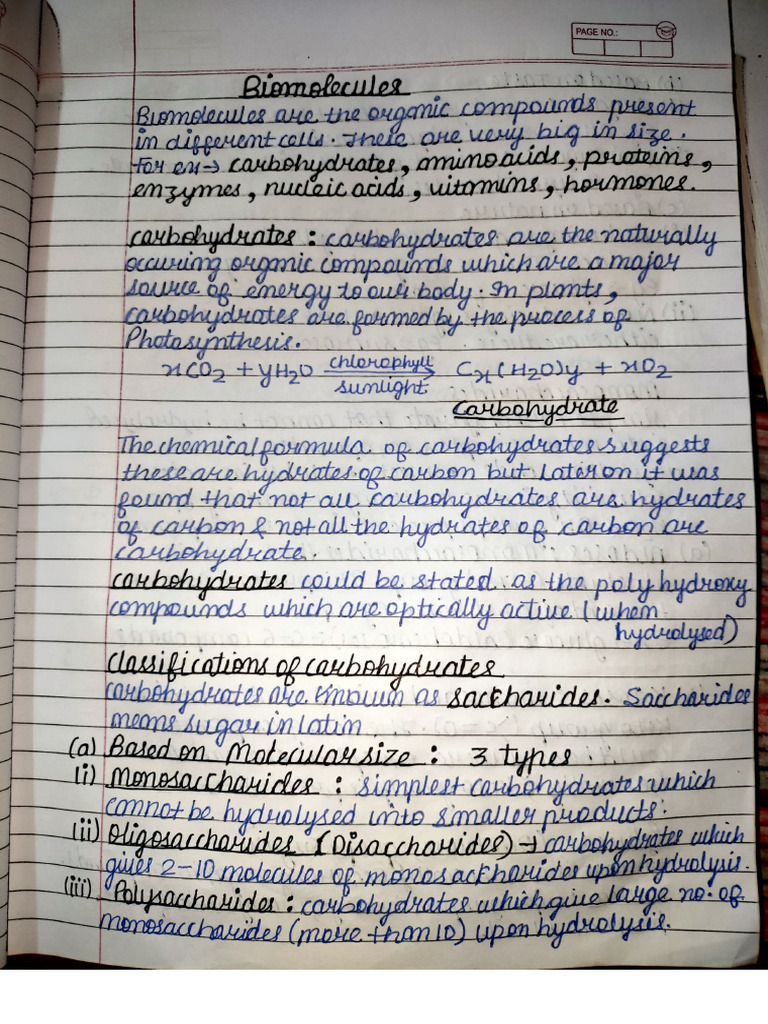 PAGE NO.:
Biomolecules
Biomolecules are the organic compounds present
in different cells. There are very big in size.
For ex→ carbohydrates, amino acids, proteins,
enzymes, nucleic acids, vitamins, hormones.
carbohydrates : carbohydrates are the naturally
occuring organic compounds which are a major
source of energy to our body. In plants,
carbohydrates are formed by the process of
Photosynthesis.
xCO2 + yH2O chlorophyll → Cx(H2O)y + xO2
sunlight
Carbohydrate
The chemical formula of carbohydrates suggests
these are hydrates of carbon but later on it was
found that not all carbohydrates are hydrates
of carbon & not all the hydrates of carbon are
carbohydrate.
carbohydrates could be stated as the poly hydroxy
compounds which are optically active (when
hydrolysed)
Classifications of carbohydrates
carbohydrates are known as saccharides. Saccharides
means sugar in latin
(a) Based on Molecular size : 3 types.
(i) Monosaccharides : simplest carbohydrates which
cannot be hydrolysed into smaller products.
(ii) Oligosaccharides (Disaccharides) → carbohydrates which
gives 2-10 molecules of monosackharides upon hydrolysis.
(iii) Polysaccharides : carbohydrates which give large no. of
monosaccharides (more than 10) upon hydrolysis.